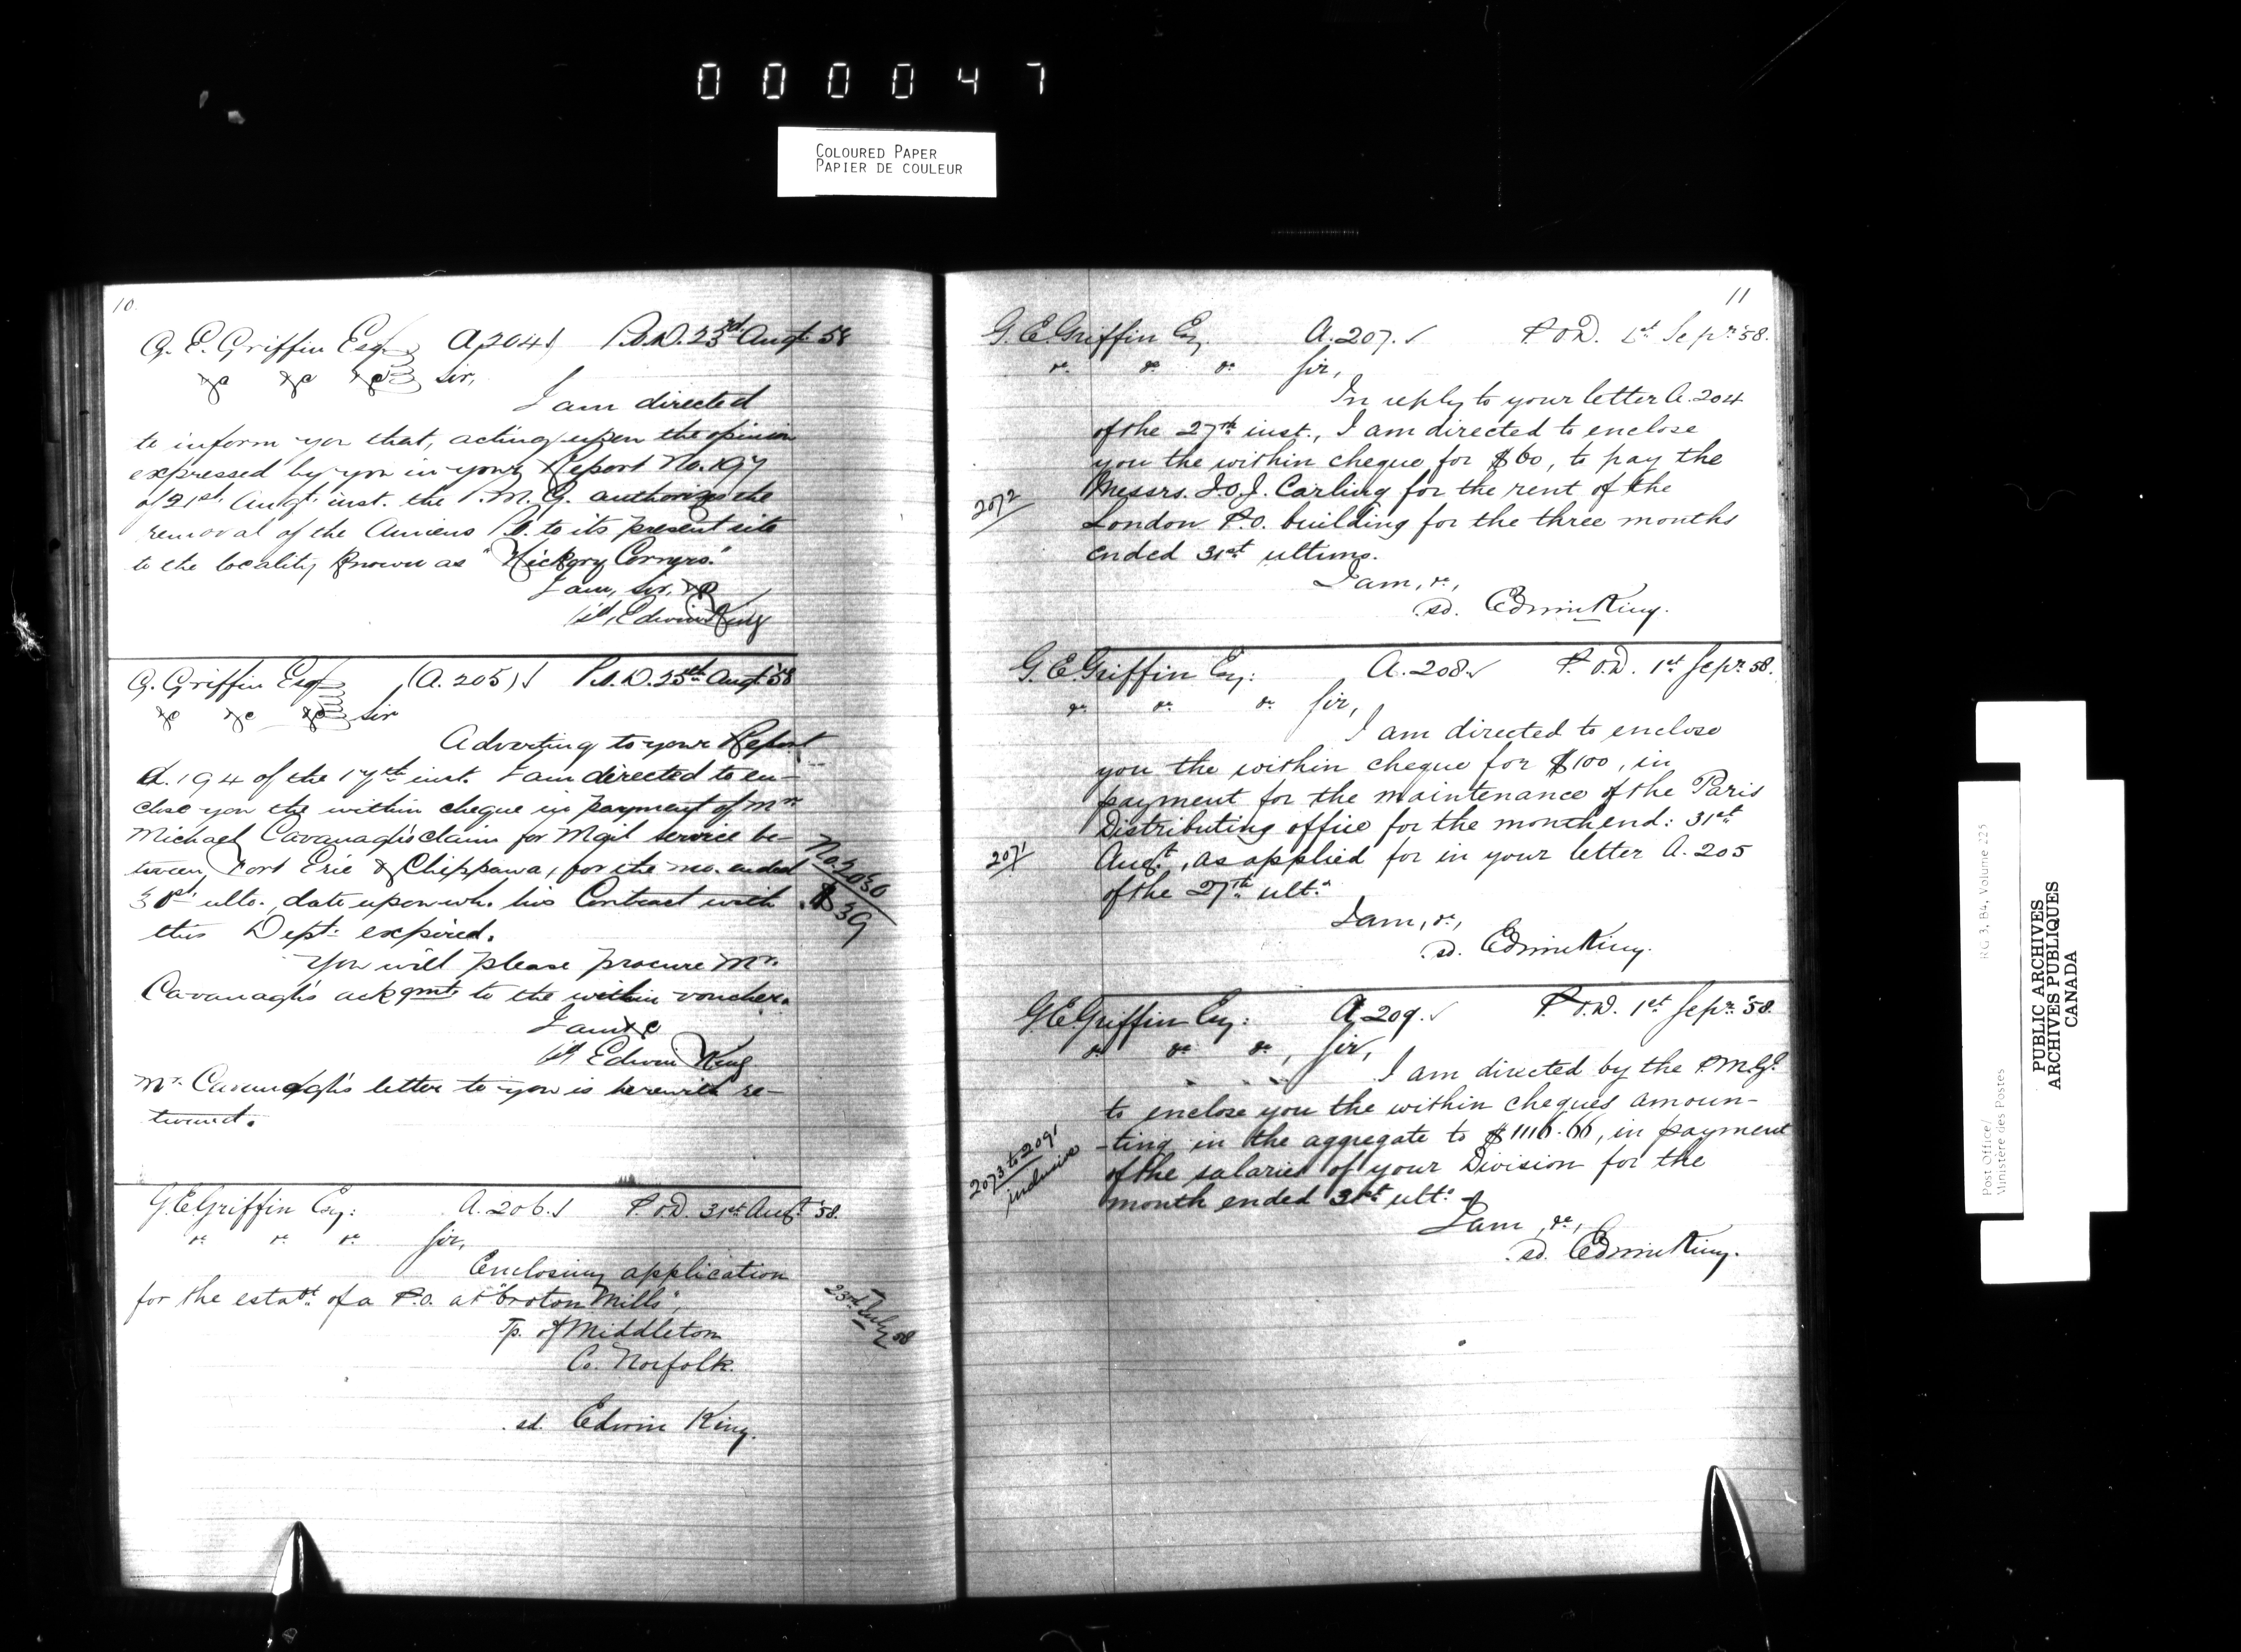 000047
COLOURED PAPER
PAPIER DE COULEUR
10
G. E. Griffin Esq A 204 P.O.D. 23rd Augt 58
&c &c &c Sir,
I am directed
to inform you that, acting upon the opinion
expressed by you in your Report No. 197
of 21st Augt inst. the P.M.G. authorizes the
removal of the Amiens P.O. to its present site
to the locality known as "Hickory Corners."
I am, Sir, &c
Edwin King
G. Griffin Esq (A. 205) P.O.D. 25th Augt 58
&c &c &c Sir
Adverting to your Report
A. 194 of the 17th inst. I am directed to en-
close you the within cheque in payment of Mr.
Michael Cavanagh's claim for Mail service be-
tween Fort Erie & Chippawa, for the mo. ended
31st ulto., date upon wh. his Contract with
this Dept: expired.
No. 2030
$39
You will please procure Mr.
Cavanagh's ackgmt to the within voucher.
I am &c
Edwin King
Mr. Cavanagh's letter to you is herewith re-
turned.
G. E Griffin Esq: A. 206. P.O.D. 31st Augt '58.
&c &c &c Sir,
Enclosing application
for the estabt. of a P.O. at "Croton Mills",
Tp. of Middleton
Co. Norfolk.
23rd July 58
sd. Edwin King.
11
G. E. Griffin Esq. A. 207. P.O.D. 1st Sepr. '58.
&c &c &c Sir,
In reply to your letter A. 204
of the 27th inst., I am directed to enclose
you the within cheque for $60, to pay the
Messrs. J. Carling for the rent of the
2072
London P.O. building for the three months
ended 31st ultimo.
I am, &c,
sd. Edwin King.
G. E Griffin Esq: A. 208. P.O.D. 1st Sepr. 58.
&c &c &c Sir,
I am directed to enclose
you the within cheque for $100, in
payment for the maintenance of the Paris
Distributing office for the month end: 31st
2071
Augt., as applied for in your letter A. 205
of the 27th ulto.
I am, &c,
sd. Edwin King.
G. E. Griffin Esq: A. 209. P.O.D. 1st Sepr. '58.
&c &c &c, Sir,
I am directed by the P.M.G.
to enclose you the within cheques amoun-
-ting in the aggregate to $1116.66, in payment
of the salaries of your Division for the
2073 to 2091
inclusive
month ended 31st ulto.
I am, &c,
sd. Edwin King.
Post Office/ RG 3, B4, Volume 225
Ministère des Postes
PUBLIC ARCHIVES
ARCHIVES PUBLIQUES
CANADA